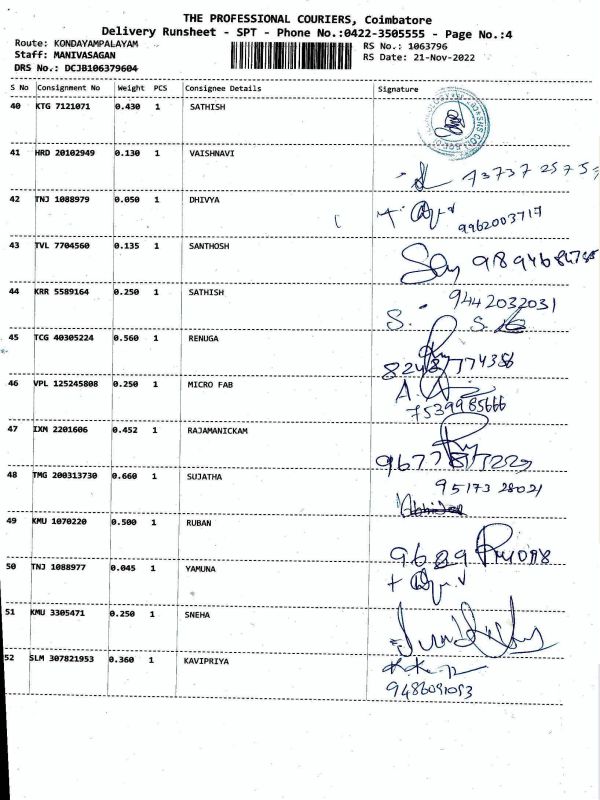 THE PROFESSIONAL COURIERS, Coimbatore
Delivery Runsheet - SPT - Phone No.:0422-3505555 - Page No.:4
Route: KONDAYAMPALAYAM
Staff: MANIVASAGAN
DRS No.: DCJB106379604
RS No.: 1063796
RS Date: 21-Nov-2022
S No Consignment No Weight PCS Consignee Details Signature
40 KTG 7121071 0.430 1 SATHISH
41 HRD 20102949 0.130 1 VAISHNAVI
42 TNJ 1088979 0.050 1 DHIVYA
9962003717
43 TVL 7704560 0.135 1 SANTHOSH
44 KRR 5589164 0.250 1 SATHISH
9442032031
45 TCG 40305224 0.560 1 RENUGA
46 VPL 125245808 0.250 1 MICRO FAB
7539985666
47 IXM 2201606 0.452 1 RAJAMANICKAM
48 TMG 200313730 0.660 1 SUJATHA
95173 28021
49 KMU 1070220 0.500 1 RUBAN
50 TNJ 1088977 0.045 1 YAMUNA
51 KMU 3305471 0.250 1 SNEHA
52 SLM 307821953 0.360 1 KAVIPRIYA
9486091053